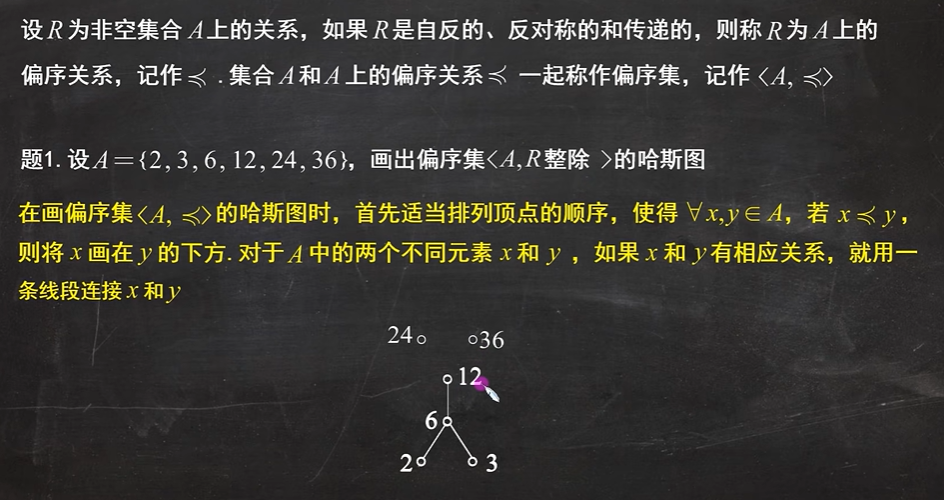 设R为非空集合A上的关系，如果R是自反的、反对称的和传递的，则称R为A上的
偏序关系，记作≼．集合A和A上的偏序关系≼ 一起称作偏序集，记作〈A, ≼〉
题1. 设A＝{2, 3, 6, 12, 24, 36}，画出偏序集<A,R整除 >的哈斯图
在画偏序集〈A, ≼〉的哈斯图时，首先适当排列顶点的顺序，使得 ∀x,y∈A，若 x≼y，
则将 x 画在 y 的下方. 对于A中的两个不同元素 x 和 y ，如果 x 和 y有相应关系，就用一
条线段连接x和y
24 36
12
6
2 3